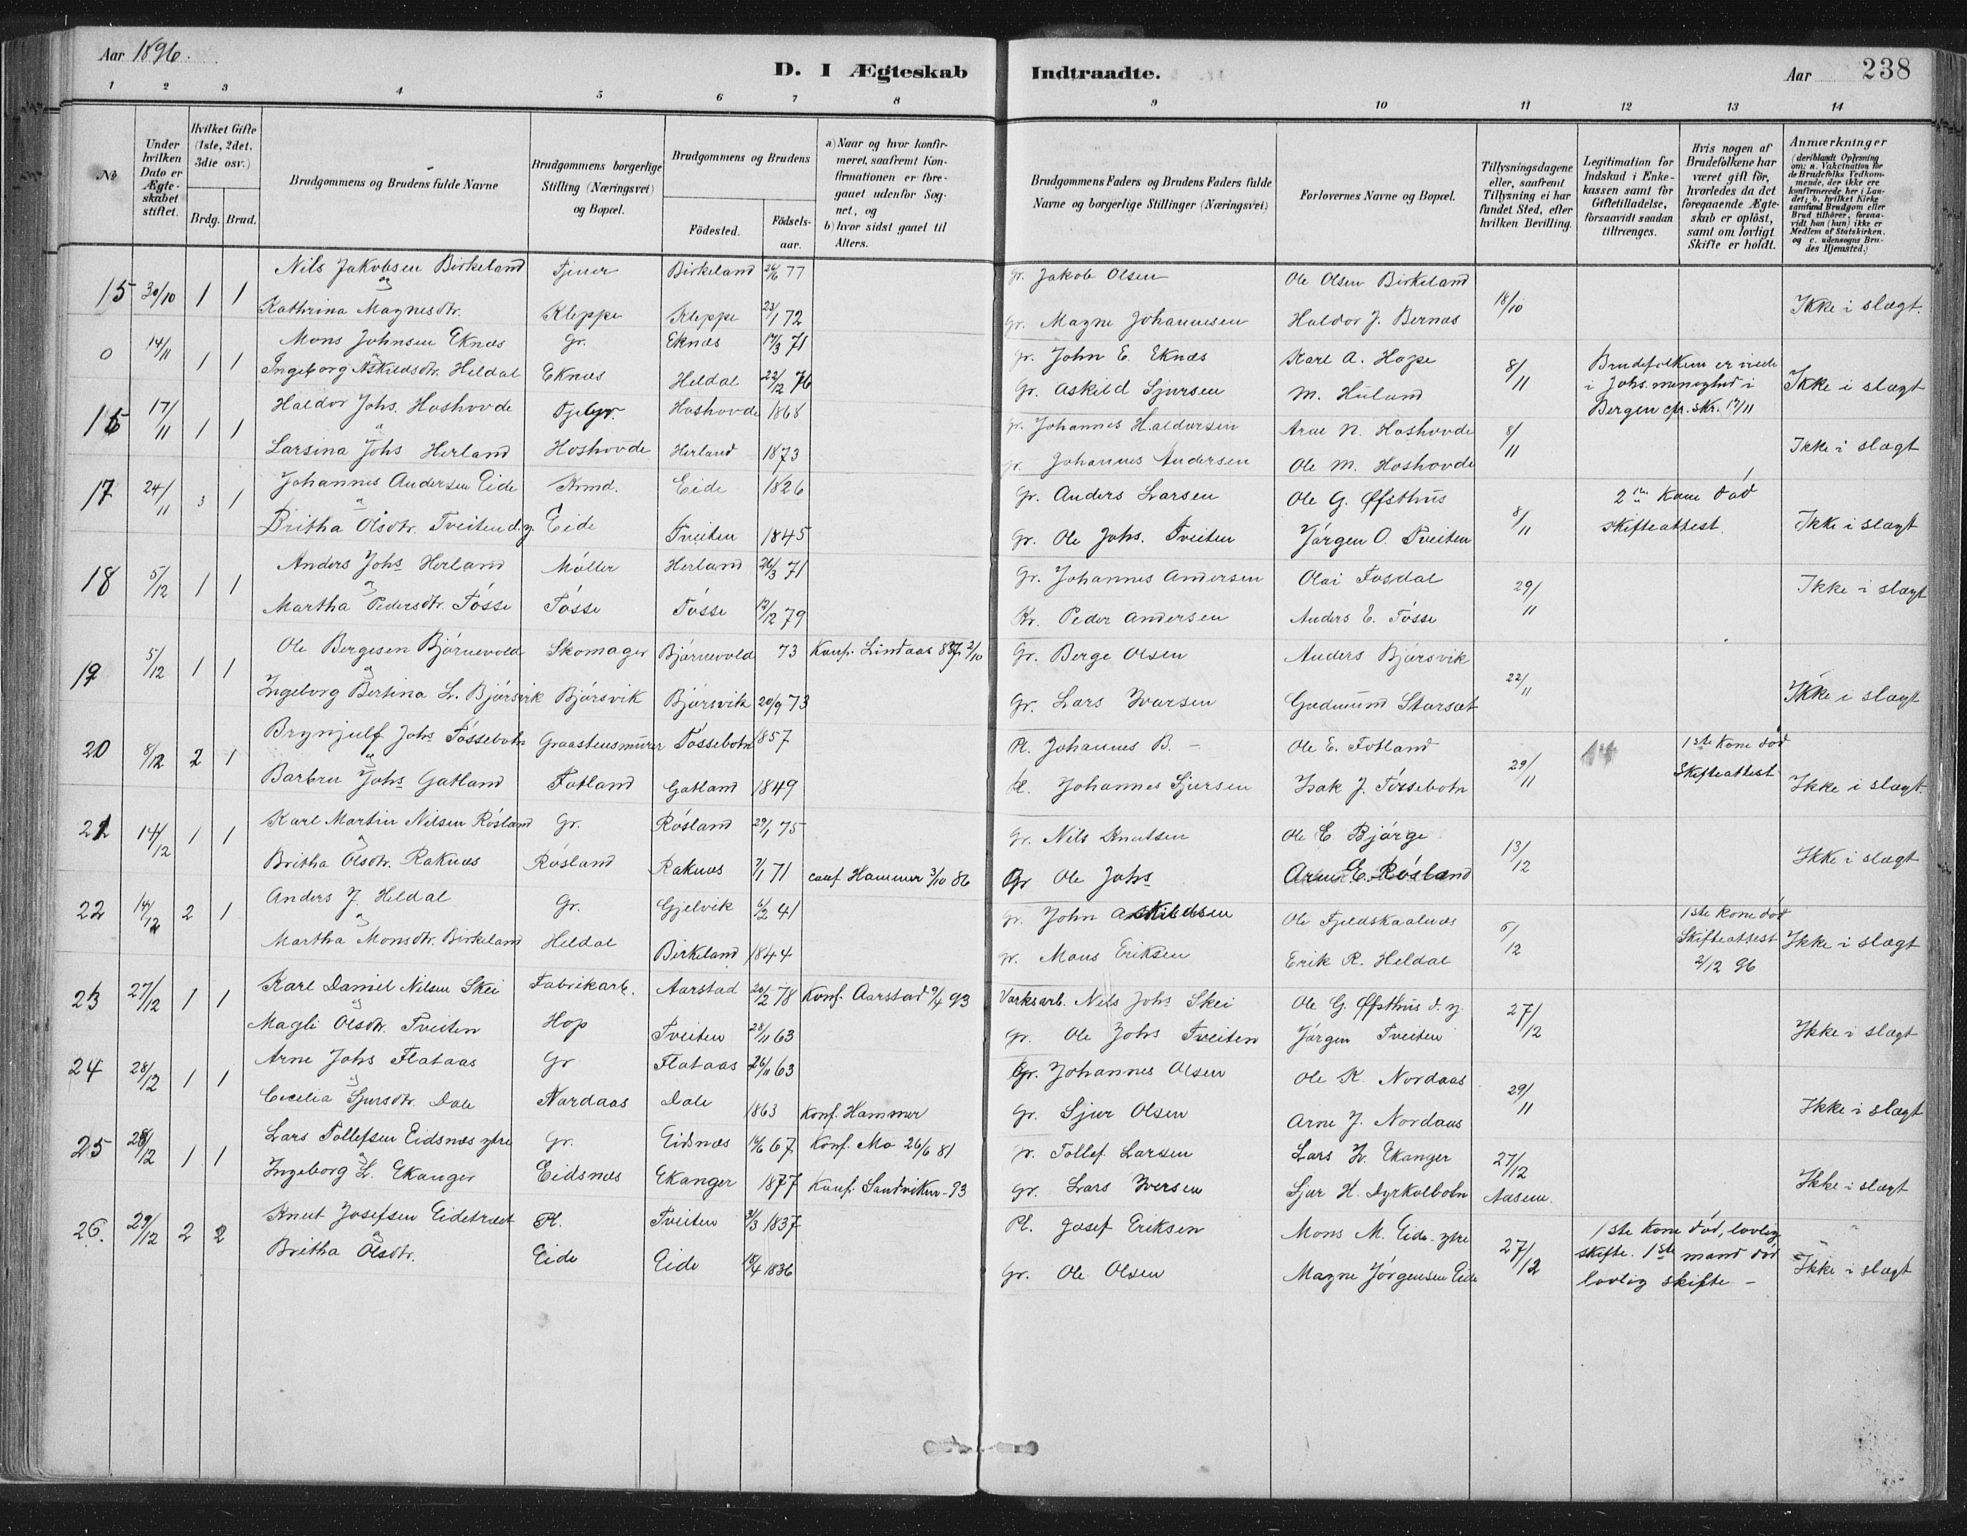 Aar 1896.
D. I Ægteskab Indtraadte.
Aar 238
1 2 3 4 5 6 7 8 9 10 11 12 13 14
No
Under hvilken Dato er Ægteskabet stiftet.
Hvilket Gifte (1ste, 2det, 3die osv.)
Brdg. Brud.
Brudgommens og Brudens fulde Navne
Brudgommens borgerlige Stilling (Næringsvei) og Bopæl.
Brudgommens og Brudens
Fødested. Fødselsaar.
a) Naar og hvor konfirmeret, saafremt Konfirmationen er foregaaet udenfor Sognet, og
b) hvor sidst gaaet til Alters.
Brudgommens Faders og Brudens Faders fulde Navne og borgerlige Stillinger (Næringsvei)
Forlovernes Navne og Bopæl.
Tillysningsdagene eller, saafremt Tillysning ei har fundet Sted, efter hvilken Bevilling.
Legitimation for Indskud i Enkekassen samt for Giftetilladelse, forsaavidt saadan tiltrænges.
Hvis nogen af Brudefolkene har været gift før, hvorledes da det foregaaende Ægteskab er opløst, samt om lovligt Skifte er holdt.
Anmærkninger
15 30/10 1 1 Nils Jakobsen Birkeland Tjener Birkeland 26/6 77 Gr. Jakob Olsen Ole Olsen Birkeland 18/10 Ikke i slægt.
og
Kathrina Magnesdtr. Kleppe Kleppe 23/1 72 Gr. Magne Johannesen Haldor J. Bernæs
0 14/11 1 1 Mons Johnsen Eknæs Gr. Eknæs 17/3 71 Gr. John E. Eknæs Karl A. Hope 8/11 Brudefolkene er viede i Johs. menighed i Bergen cfr. skr. 17/11 Ikke i slægt
Ingeborg Askildsdtr. Heldal Eknæs Heldal 22/12 76 Gr. Askild Sjursen M. Huland
16 17/11 1 1 Haldor Johs. Hoshovde Gr. Hoshovde 1868 Gr. Johannes Haldorsen Arne N. Hoshovde 8/11 Ikke i slægt
Larsina Johs Herland Hoshovde Herland 1873 Gr. Johannes Andersen Ole M. Hoshovde
17 24/11 3 1 Johannes Andersen Eide Krmd. Eide 1826 Gr. Anders Larsen Ole G. Øfsthus 8/11 2den Kone død skifteattest. Ikke i slægt
Britha Olsdtr. Tveiten d.y. Eide Tveiten 1845 Gr. Ole Johs. Tveiten Jørgen O. Tveiten
18 5/12 1 1 Anders Johs Herland Møller Herland 26/3 71 Gr. Johannes Andersen Olai Fosdal 29/11 Ikke i slægt
og
Martha Pedersdtr. Tøsse Tøsse Tøsse 12/12 79 Kr. Peder Andersen Anders E. Tøsse
19 5/12 1 1 Ole Bergesen Bjørnevold Skomager Bjørnevold 73 Konf. Lindaas 887 2/10 Gr. Berge Olsen Anders Bjørsvik 22/11 Ikke i slægt
og
Ingeborg Bertina L. Bjørsvik Bjørsvik Bjørsvik 20/9 73 Gr. Lars Ivarsen Gudmund Storsæt
20 8/12 2 1 Brynjulf Johs Tøssebotn Graastensmurer Tøssebotn 1857 Pl. Johannes B. - Ole E. Fotland 29/11 1ste Kone død Skifteattest Ikke i slægt.
og
Barbru Johs Gatland Fotland Gatland 1849 Pl. Johannes Sjursen Isak J. Tøssebotn
21 14/12 1 1 Karl Martin Nilsen Røsland Gr. Røsland 29/1 75 Gr. Nils Knutsen Ole E. Bjørge 13/12 Ikke i slægt
og
Britha Olsdtr. Raknæs Røsland Raknæs 2/1 71 conf Hammer 3/10 86 Gr Ole Johs Arne E. Røsland
22 14/12 2 1 Anders J. Heldal Gr. Gjelvik 6/2 41 Gr. John Askildsen Ole Fjeldskaalnæs 6/12 1ste Kone død Skifteattest 2/12 96 Ikke i slægt
og
Martha Monsdtr. Birkeland Heldal Birkeland 1844 Gr. Mons Eriksen Erik R. Heldal
23 27/12 1 1 Karl Daniel Nilsen Skei Fabrikarb. Aarstad 20/2 78 Konf. Aarstad 9/4 93 Værksarb. Nils Johs Skei Ole G. Øfsthus d. y. 27/12 Ikke i slægt
og
Magli Olsdtr. Tveiten Hop Tveiten 23/11 63 Gr. Ole Johs Tveiten Jørgen Tveiten
24 28/12 1 1 Arne Johs Flataas Gr Flataas 26/11 63 Gr. Johannes Olsen Ole K. Nordaas 29/11 Ikke i slægt
og
Cecilia Sjursdtr. Dale Nordaas Dale 1863 Konf. Hammer Gr. Sjur Olsen Arne J. Nordaas
25 28/12 1 1 Lars Tollefsen Eidsnæs ytre Gr. Eidsnæs 14/6 67 Konf. Mo 26/6 81 Gr. Tollef Larsen Lars Iv. Ekanger 27/12 Ikke i slægt
og
Ingeborg L. Ekanger Eidsnæs Ekanger 1877 Konf. Sandviken - 93 Gr. Lars Iversen Sjur H. Dyrkolbotn Aasene.
26. 29/12 2 2 Knut Josefsen Eidetræet Pl. Tveiten 31/3 1837 Pl. Josef Eriksen Mons M. Eide ytre 27/12 1ste Kone død, lovlig skifte. 1ste mand død lovlig skifte - Ikke i slægt
og
Britha Olsdtr. Eide Eide 18/4 1836 Gr. Ole Olsen Magne Jørgensen Eide